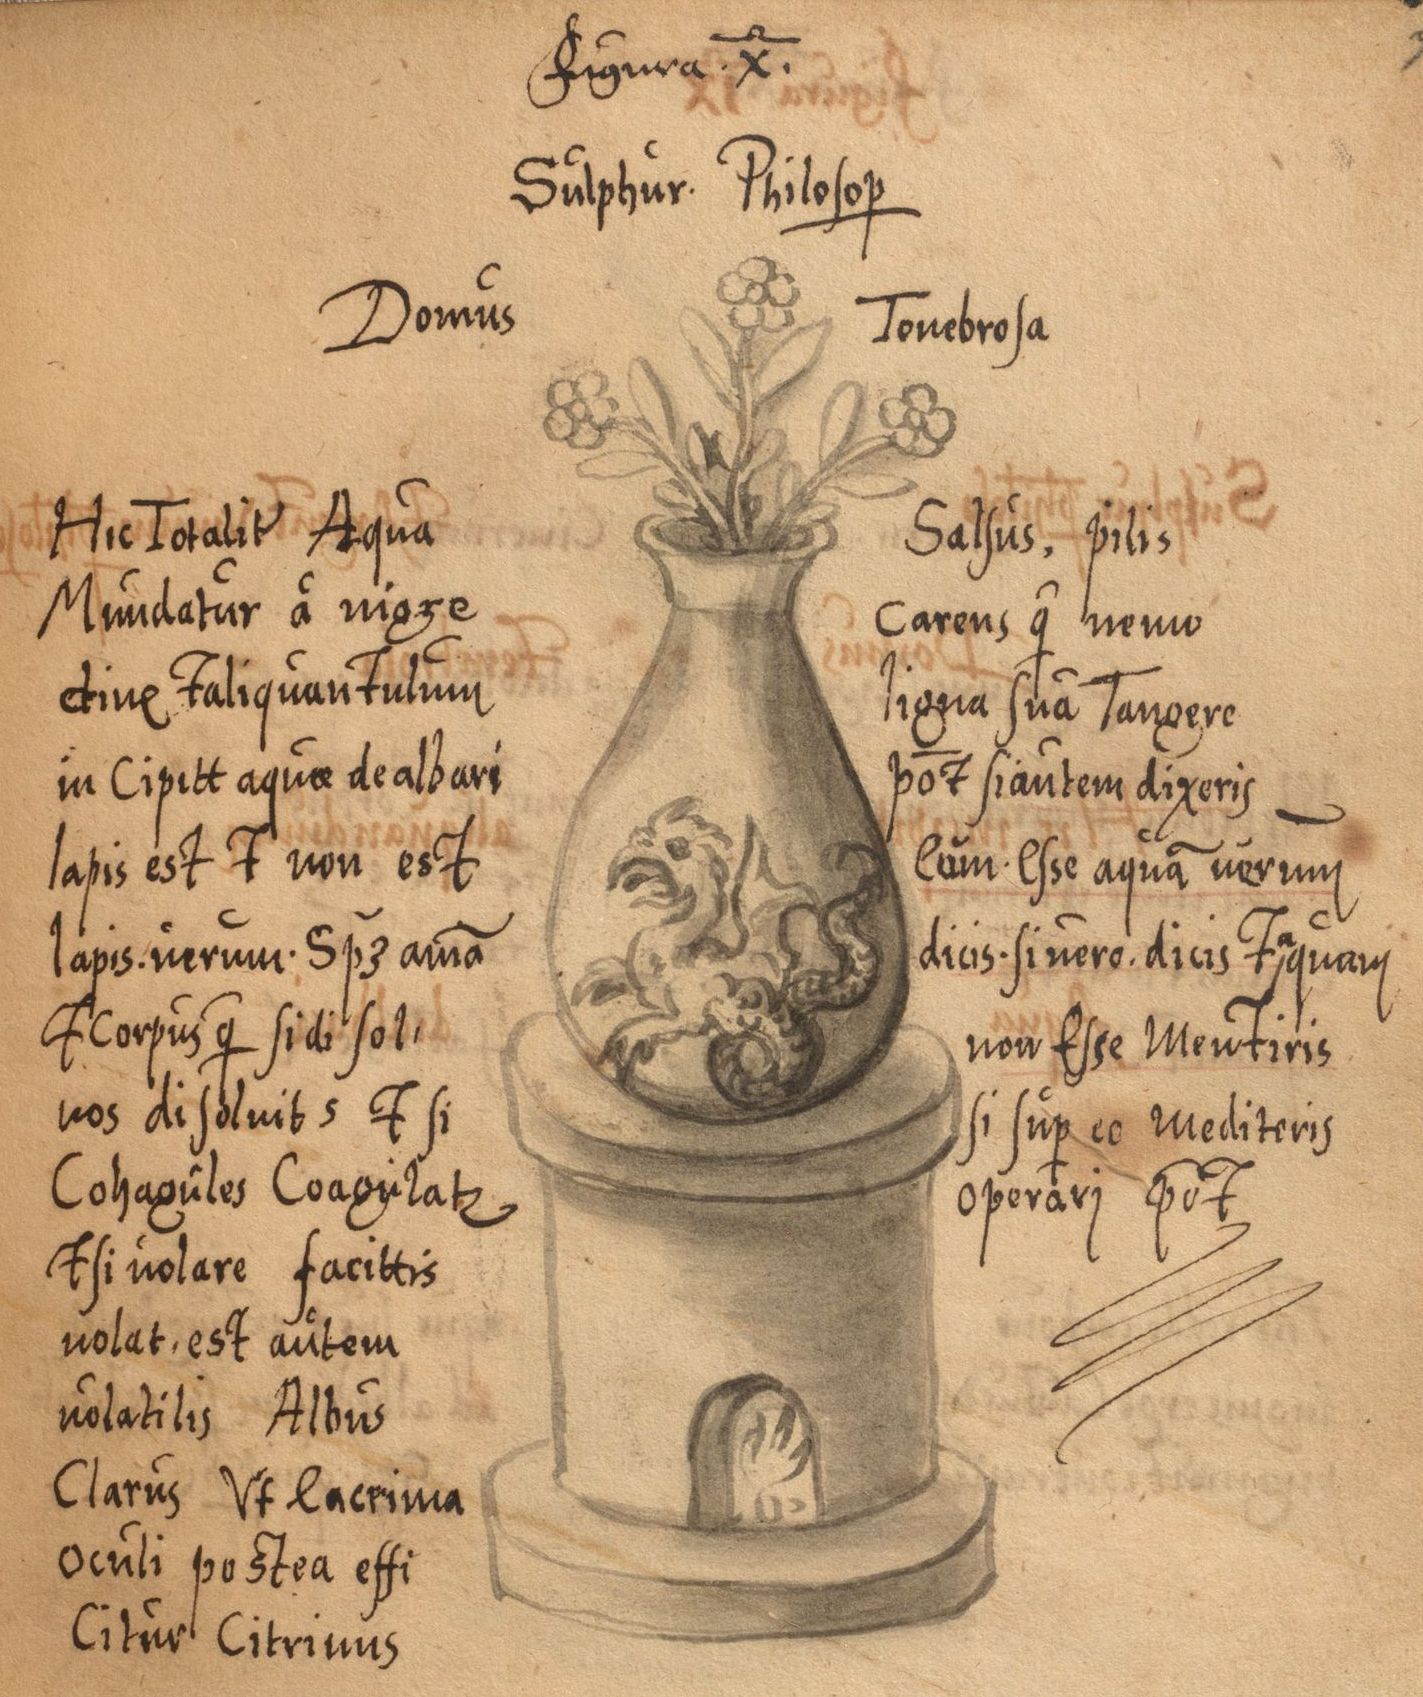 Figura. X.
Sulphur. Philosop
Domus Tenebrosa
Hic Totalit Aqua
Mundatur a nigre
dine T aliquantulum
in Cipitt aquæ dealbari
lapis est T non est
lapis. verum. Spʒ amã
T Corpus q̃ si di sol,
vos disoluit s T si
Cohagules Coagulatʒ
T si volare facittis
volat, est autem
volatilis Albus
Clarus Vt Lacrima
oculi postea effi
Citur Citrinus
Salsus, pilis
Carens q̃ nemo
ligna suã Tangere
põt si autem dixeris
Eum. Esse aquã verum
dicis. si vero. dicis T aquam
non Esse Mentiris
si sup eo Mediteris
operarj põt